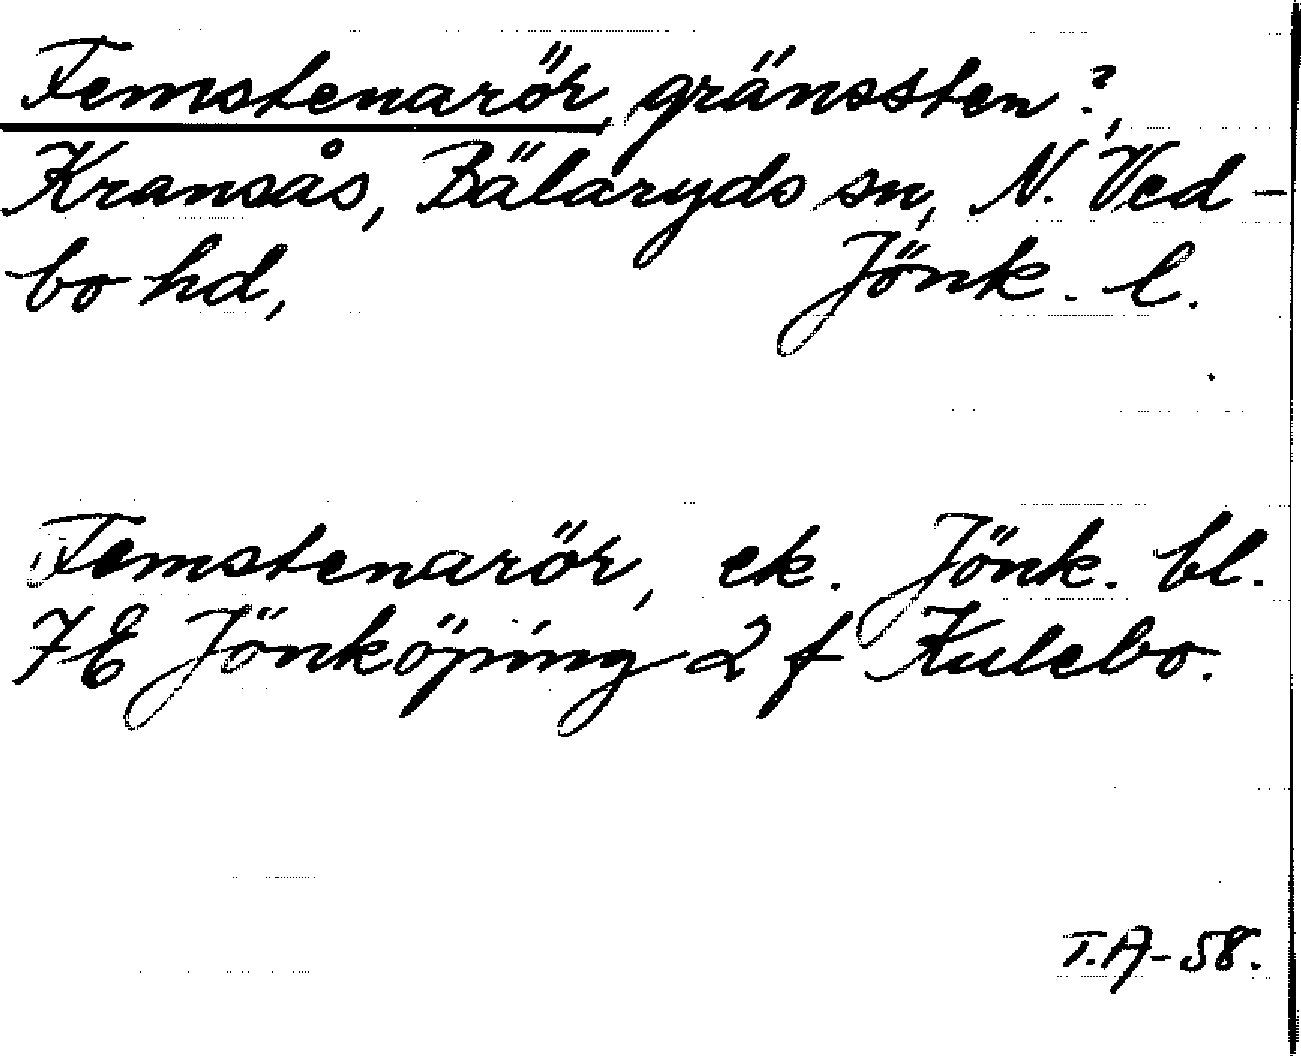 Femstenarör, gränssten?,
Kransås, Bälaryds sn, N. Ved-
bo hd, Jönk. l.
Femstenarör, ek. Jönk. bl.
7E Jönköping 2 f Kulebo.
T.A-58.